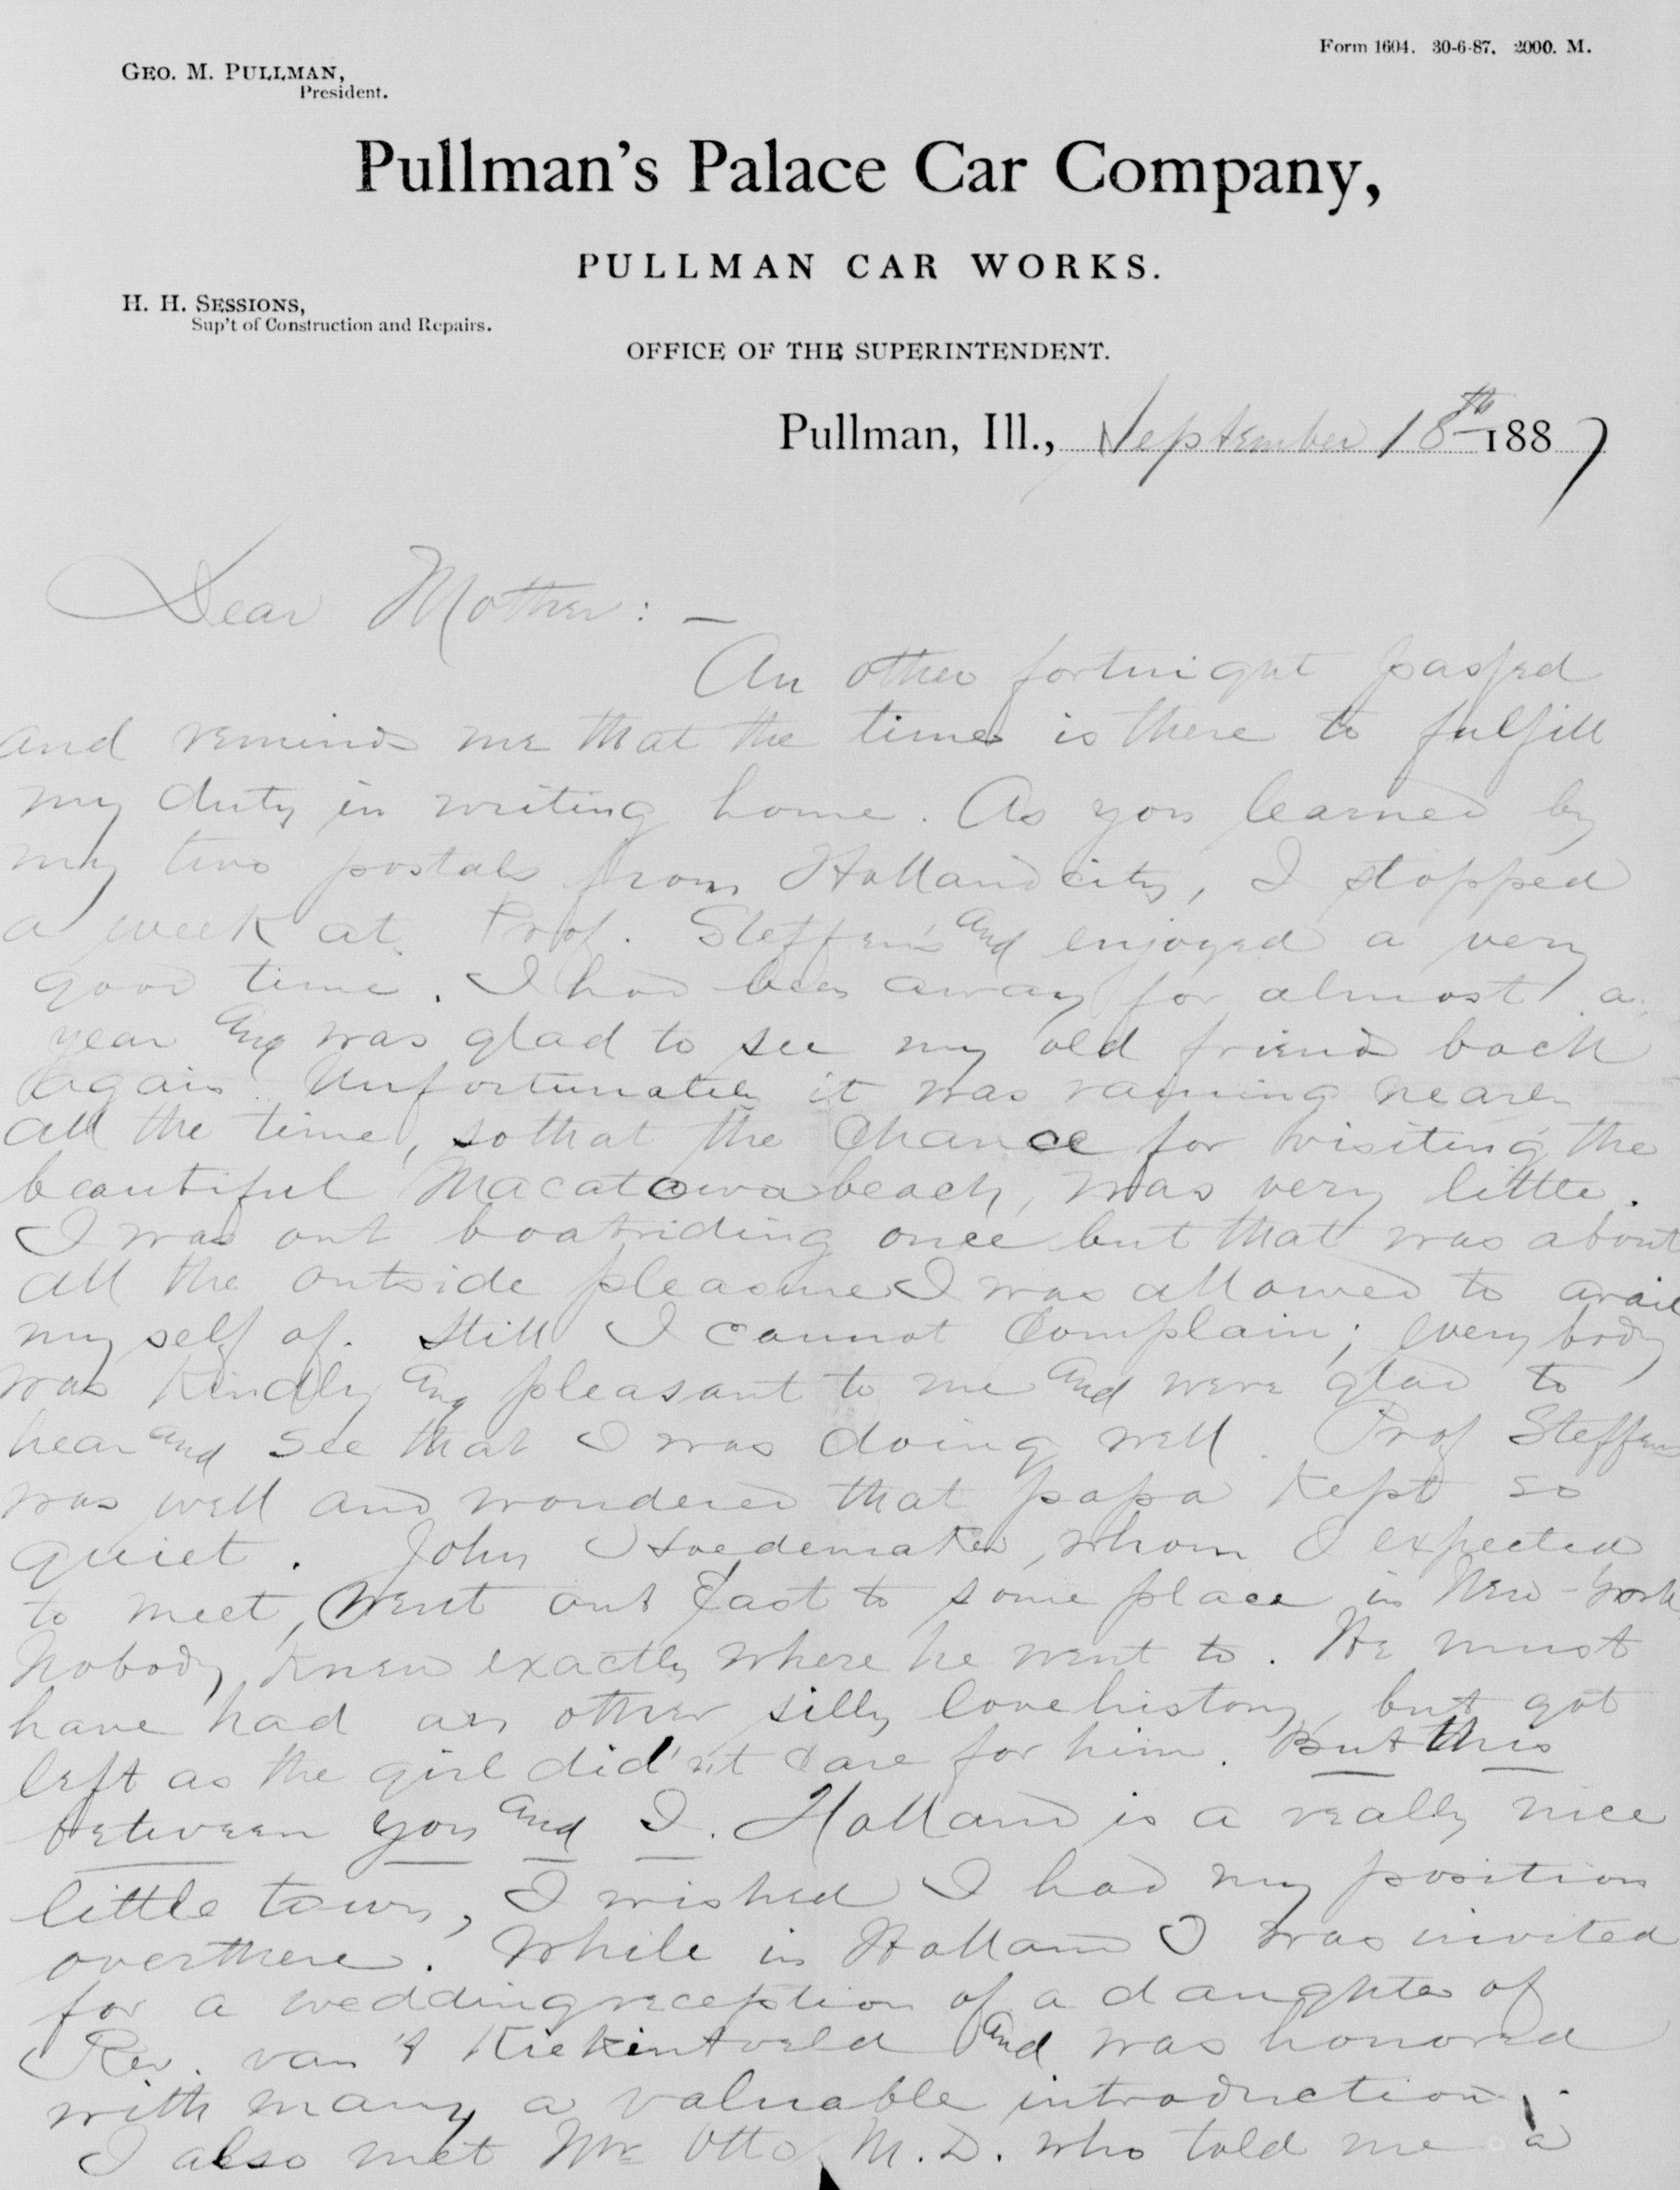 Form 1604. 30-6-87. 2000. M.
GEO. M. PULLMAN,
President.
Pullman's Palace Car Company,
PULLMAN CAR WORKS.
H. H. SESSIONS,
Sup't of Construction and Repairs.
OFFICE OF THE SUPERINTENDENT.
Pullman, Ill., September 18th 1887
Dear Mother: —
An other fortnight passed
and reminds me that the time is there to fulfill
my duty in writing home. As you learned by
my two postals from Holland city, I stopped
a week at Prof. Steffens and enjoyed a very
good time. I had been away for almost a
year and was glad to see my old friends back
again. Unfortunately it was raining nearly
all the time, so that the chance for visiting the
beautiful Macatawa beach, was very little.
I was out boatriding once but that was about
all the outside pleasure I was allowed to avail
my self of. Still I cannot complain; every body
was kindly and pleasant to me and were glad to
hear and see that I was doing well. Prof Steffens
was well and wondered that papa kept so
quiet. John Hoedemaker, whom I expected
to meet, went out East to some place in New-York
Nobody knew exactly where he went to. He must
have had an other silly lovehistory, but got
left as the girl did'nt care for him. But this
between you and I. Holland is a really nice
little town, I wished I had my position
overthere. While in Holland I was invited
for a weddingreception of a daughter of
Rev. van 't Kiekintveld and was honored
with many a valuable introduction.
I also met Mr Otto, M. D. who told me a